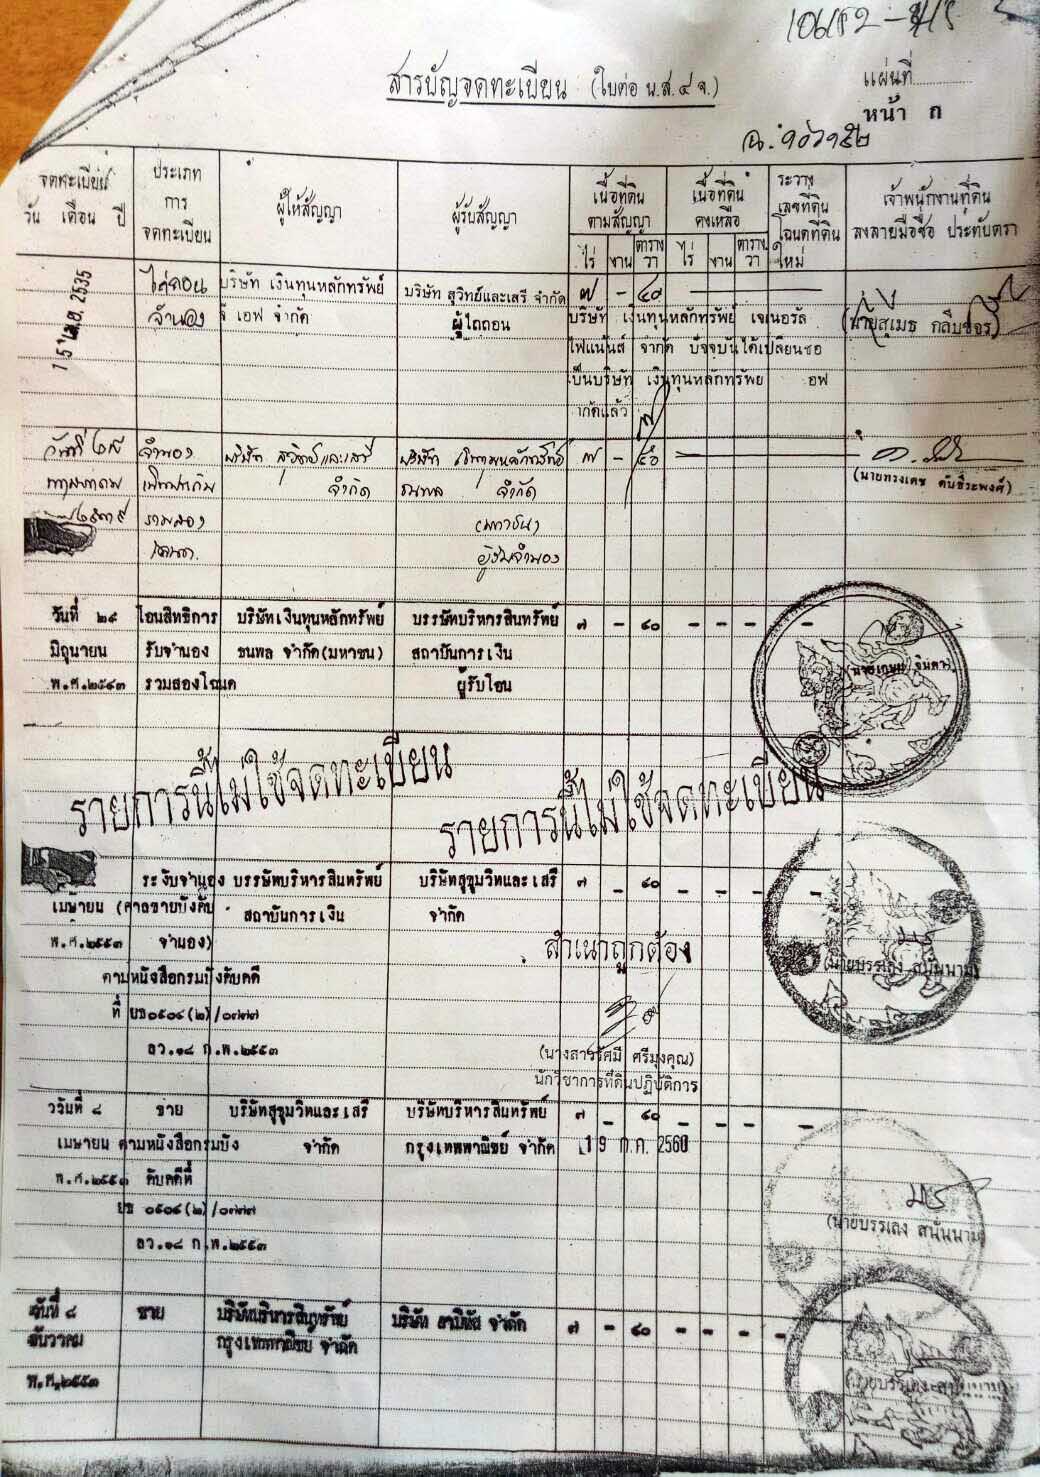 สารบัญจดทะเบียน (ใบต่อ น.ส.๔ จ.)
แผ่นที่
หน้า ก
ฉ. ๑๐๖๑๕๒
จดทะเบียน วัน เดือน ปี
ประเภทการจดทะเบียน
ผู้ให้สัญญา
ผู้รับสัญญา
เนื้อที่ดินตามสัญญา
ไร่ งาน ตารางวา
เนื้อที่ดินคงเหลือ
ไร่ งาน ตารางวา
ระวาง เลขที่ดิน โฉนดที่ดินใหม่
เจ้าพนักงานที่ดิน ลงลายมือชื่อ ประทับตรา
15 เม.ย. 2535
ไถ่ถอน บริษัท เงินทุนหลักทรัพย์ บริษัท สุวิทย์และเสรี จำกัด ๗ -
จำนอง จี เอฟ จำกัด ผู้ไถ่ถอน
บริษัท เงินทุนหลักทรัพย์ เจเนอรัล
ไฟแนนส์ จำกัด ปัจจุบันได้เปลี่ยนชื่อ
เป็นบริษัท เงินทุนหลักทรัพย์ อฟ
ำกัดแล้ว
(นายสุเมธ กลีบขจร)
จำนอง บริษัท สุวิทย์และเสรี บริษัท เงินทุนหลักทรัพย์ ๗ -
จำกัด ธนพล จำกัด
รวมสอง (มหาชน)
โฉนด ผู้รับจำนอง
วันที่ ๒๙ โอนสิทธิการ บริษัทเงินทุนหลักทรัพย์ บรรษัทบริหารสินทรัพย์ ๗ - ๔๐ - - - -
มิถุนายน รับจำนอง ธนพล จำกัด(มหาชน) สถาบันการเงิน
พ.ศ.๒๕๔๓ รวมสองโฉนด ผู้รับโอน
รายการนี้ไม่ใช้จดทะเบียน รายการนี้ไม่ใช้จดทะเบียน
ระงับจำนอง บรรษัทบริหารสินทรัพย์ บริษัทสุขุมวิทและเสรี ๗ - ๔๐ - - - -
เมษายน (ศาลขายบังคับ สถาบันการเงิน จำกัด
พ.ศ.๒๕๕๓ จำนอง)
ตามหนังสือกรมบังคับคดี
ที่ ยธ๐๕๐๔(๒)/๐๗๗๗
ลว.๑๘ ก.พ.๒๕๕๓
(นายบรรเลง สนั่นนาม)
สำเนาถูกต้อง
(นางสาวรัศมี ศรีมุงคุณ)
นักวิชาการที่ดินปฏิบัติการ
19 ก.ค. 2560
ววันที่ ๘ ขาย บริษัทสุขุมวิทและเสรี บริษัทบริหารสินทรัพย์ ๗ - ๔๐ - - - -
เมษายน ตามหนังสือกรมบัง จำกัด กรุงเทพพาณิชย์ จำกัด
พ.ศ.๒๕๕๓ คับคดีที่
ยธ ๐๕๐๔(๒)/๐๗๗๗
ลว.๑๘ ก.พ.๒๕๕๓
(นายบรรเลง สนั่นนาม)
วันที่ ๘ ขาย บริษัทบริหารสินทรัพย์ บริษัท จำกัด ๗ - ๔๐ - - - -
ธันวาคม กรุงเทพพาณิชย์ จำกัด
พ.ศ.๒๕๕๓
(นายบรรเลง สนั่นนาม)